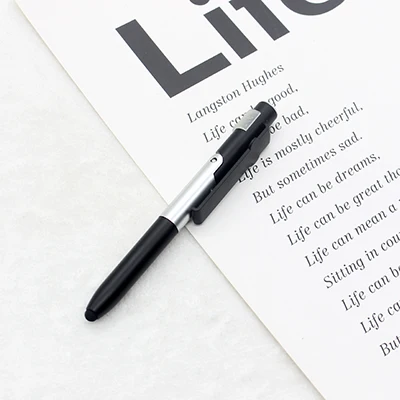 Life
Langston Hughes
Life can good,
be bad.
Life is mostly cheerful.
But sometimes sad.
Life can be dreams.
Life can be great tho
Life can mean a
Sitting in cou
Life can be
Life ca
But